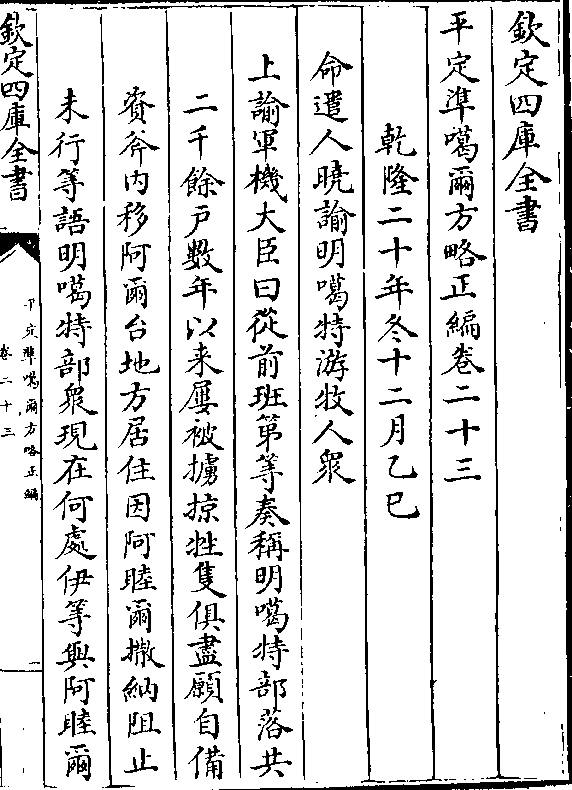 欽定四庫全書
平定準噶爾方略正編卷二十三
乾隆二十年冬十二月乙巳
命遣人曉諭明噶特游牧人衆
上諭軍機大臣曰從前班第等奏稱明噶特部落共
二千餘戶數年以来屢被擄掠牲隻俱盡願自備
資斧内移阿爾台地方居住因阿睦爾撒納阻止
未行等語明噶特部衆現在何處伊等與阿睦爾
欽定四庫全書
平定準噶爾方略正編
卷二十三
一